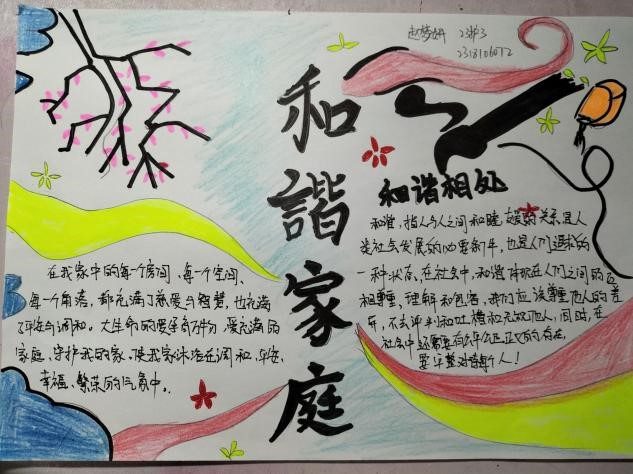 赵梦妍 23护3
2318106072
和谐家庭
和谐相处
和谐,指人与人之间和睦、友爱的关系,是人
类社会发展的必要条件,也是人们追求的
一种状态,在社会中,和谐体现在人们之间的互
相尊重,理解和包容,我们应该尊重他人的差
异,不去评判和吐槽和 他人,同时,在
社会中还需要有公平公正正义的存在,
要平等对待每个人!
在我家中的每一个房间、每一个空间、
每一个角落,都充满了慈爱与智慧,也充满
了平安与调和。大生命的 万分,爱充满的
家庭,守护我的家,使我家沐浴在调和、平安、
幸福、繁荣的气氛中。